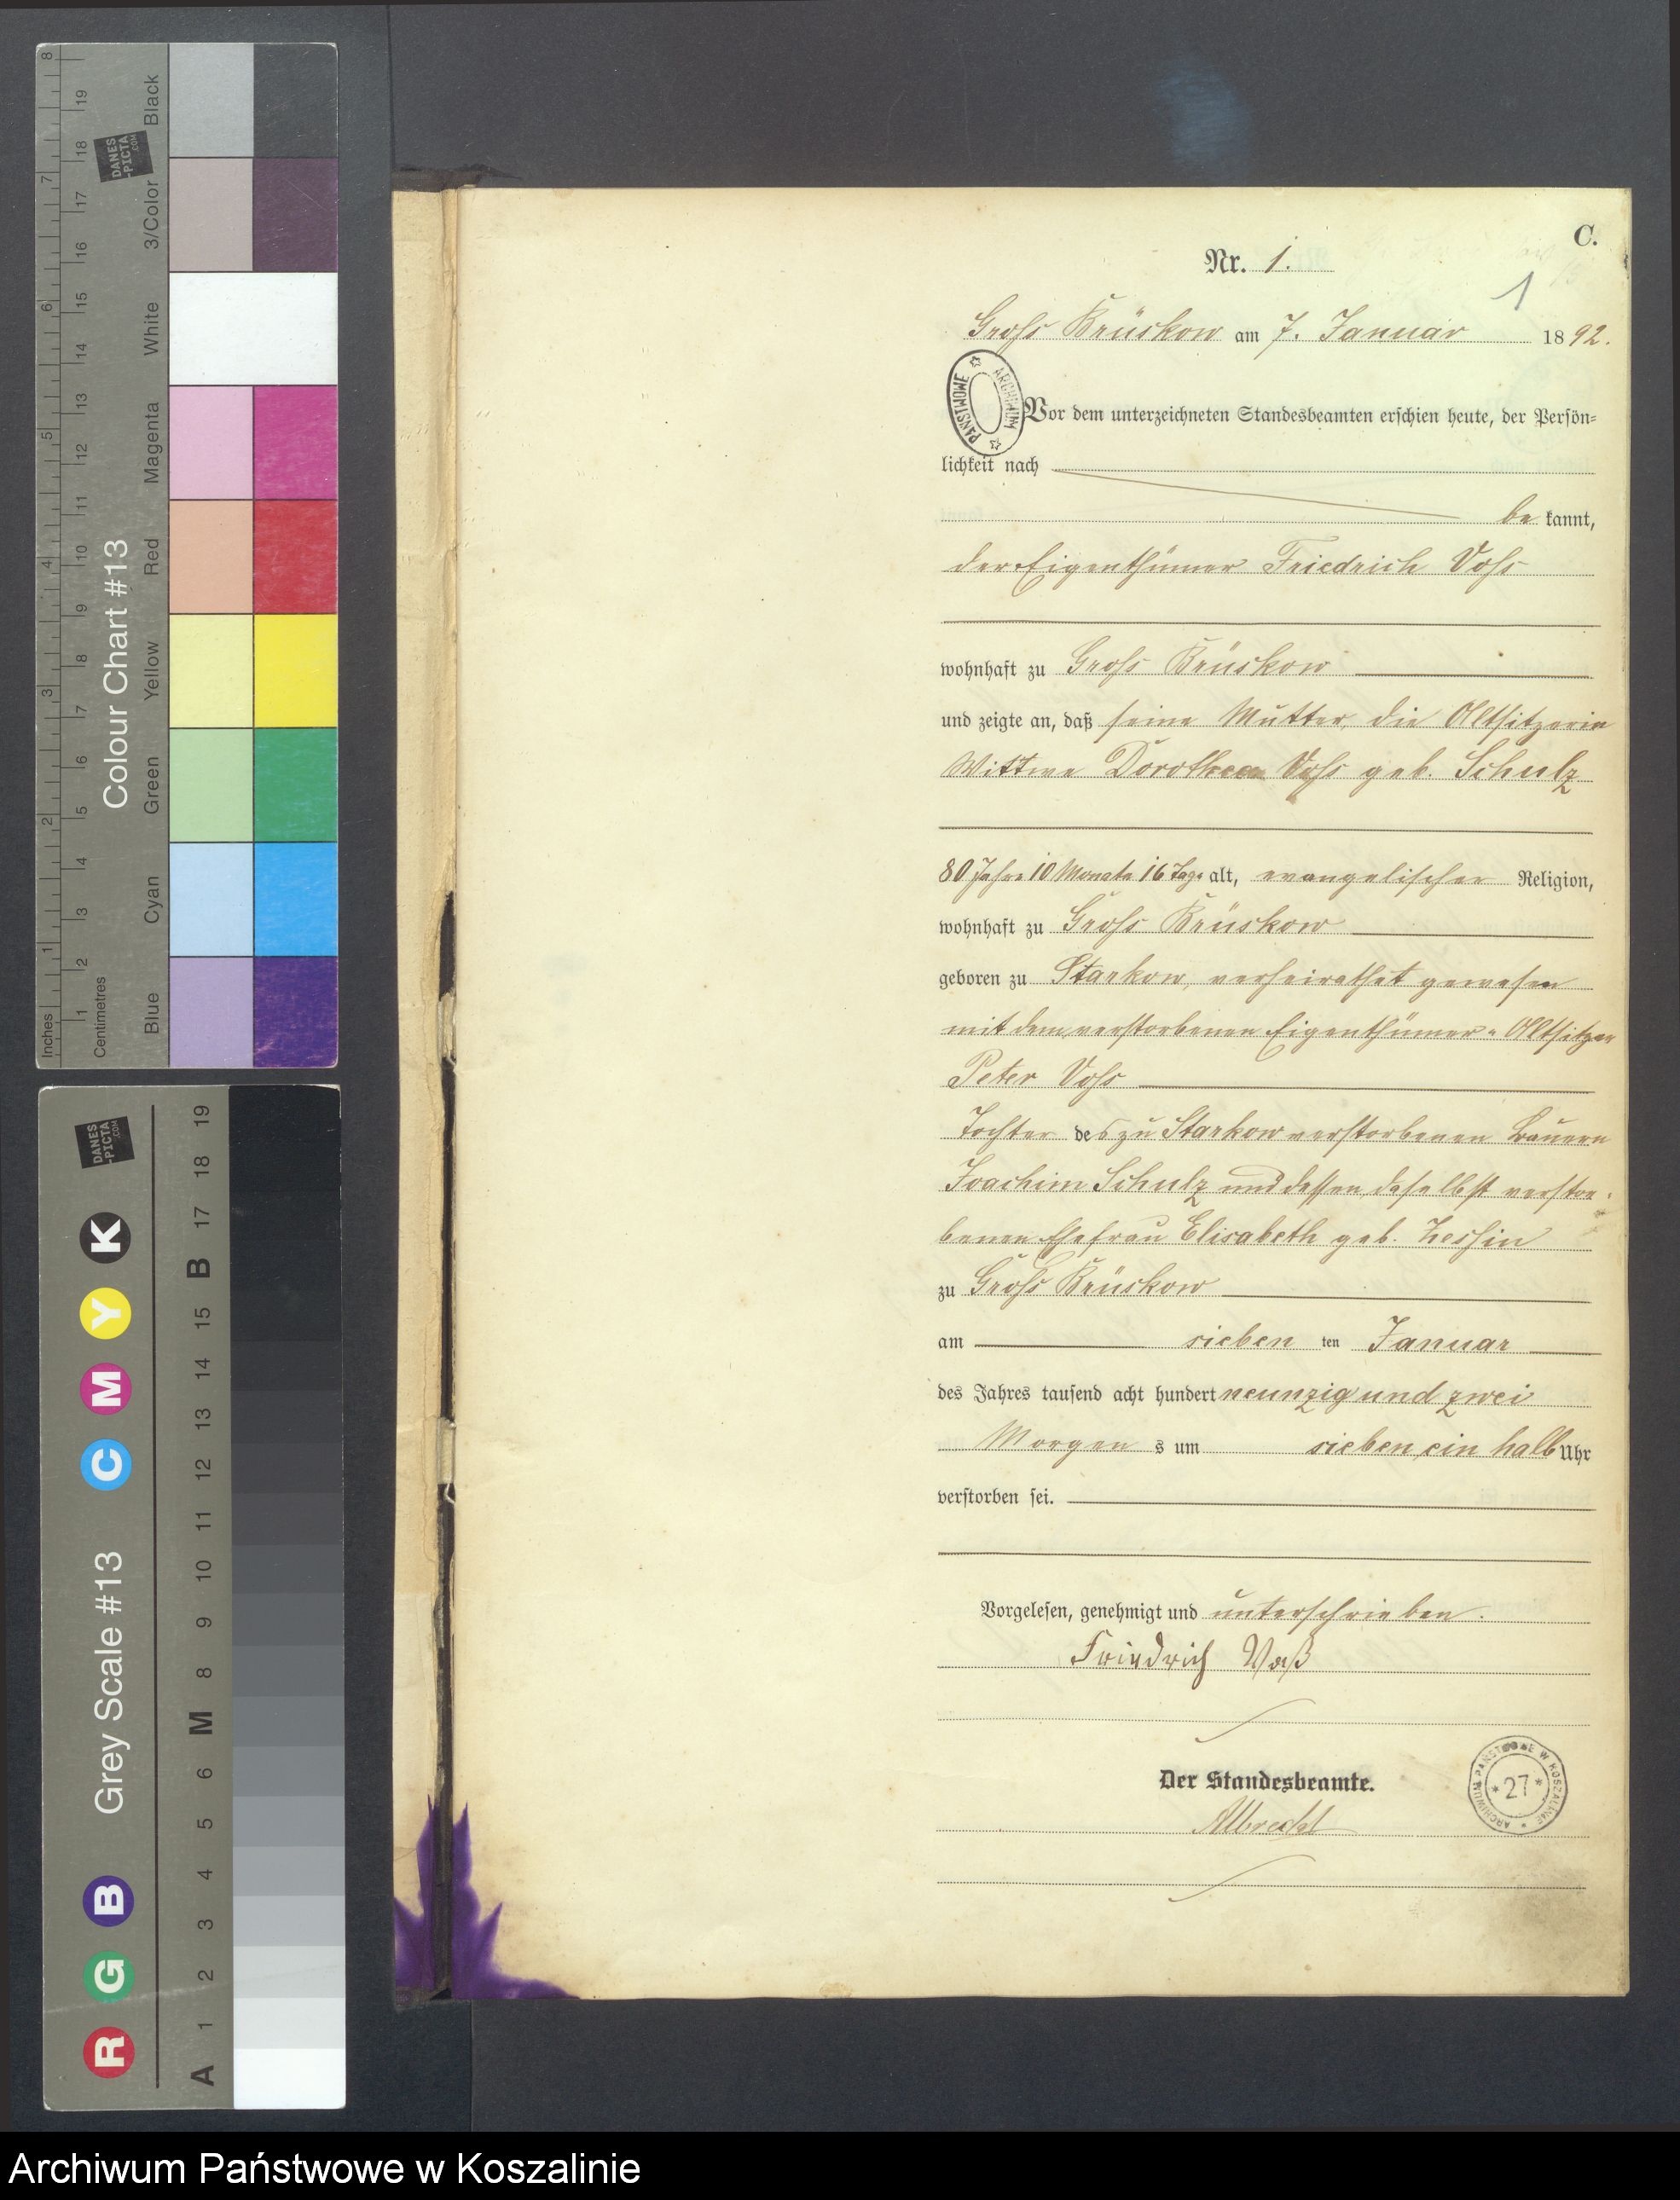 C.
Nr. 1.
1
Gross Brüskow am 7. Januar 1892.
Vor dem unterzeichneten Standesbeamten erschien heute, der Persön-
lichkeit nach
be kannt,
der Eigenthümer Friedrich Voss
wohnhaft zu Gross Brüskow
und zeigte an, daß seine Mutter, die Altsitzerin
Wittwe Dorothea Voss geb. Schulz
80 Jahre 10 Monate 16 Tage alt, evangelischer Religion,
wohnhaft zu Gross Brüskow
geboren zu Starkow, verheirathet gewesen
mit dem verstorbenen Eigenthümer-Altsitzer
Peter Voss
Tochter des zu Starkow verstorbenen Bauern
Joachim Schulz und dessen daselbst verstor-
benen Ehefrau Elisabeth geb. Zessin
zu Gross Brüskow
am sieben ten Januar
des Jahres tausend acht hundert neunzig und zwei
Morgen s um sieben ein halb Uhr
verstorben sei.
Vorgelesen, genehmigt und unterschrieben.
Friedrich Voß
Der Standesbeamte.
Albrecht
ARCHIWUM PAŃSTWOWE
ARCHIWUM PAŃSTWOWE W KOSZALINIE
*27*
Colour Chart #13
Blue Cyan Green Yellow Red Magenta White 3/Color Black
Inches 1 2 3 4 5 6 7 8
Centimetres 1 2 3 4 5 6 7 8 9 10 11 12 13 14 15 16 17 18 19
DANES
-PICTA
.COM
Grey Scale #13
R G B C M Y K
A 1 2 3 4 5 6 M 8 9 10 11 12 13 14 15 B 17 18 19
DANES
-PICTA
.COM
Archiwum Państwowe w Koszalinie